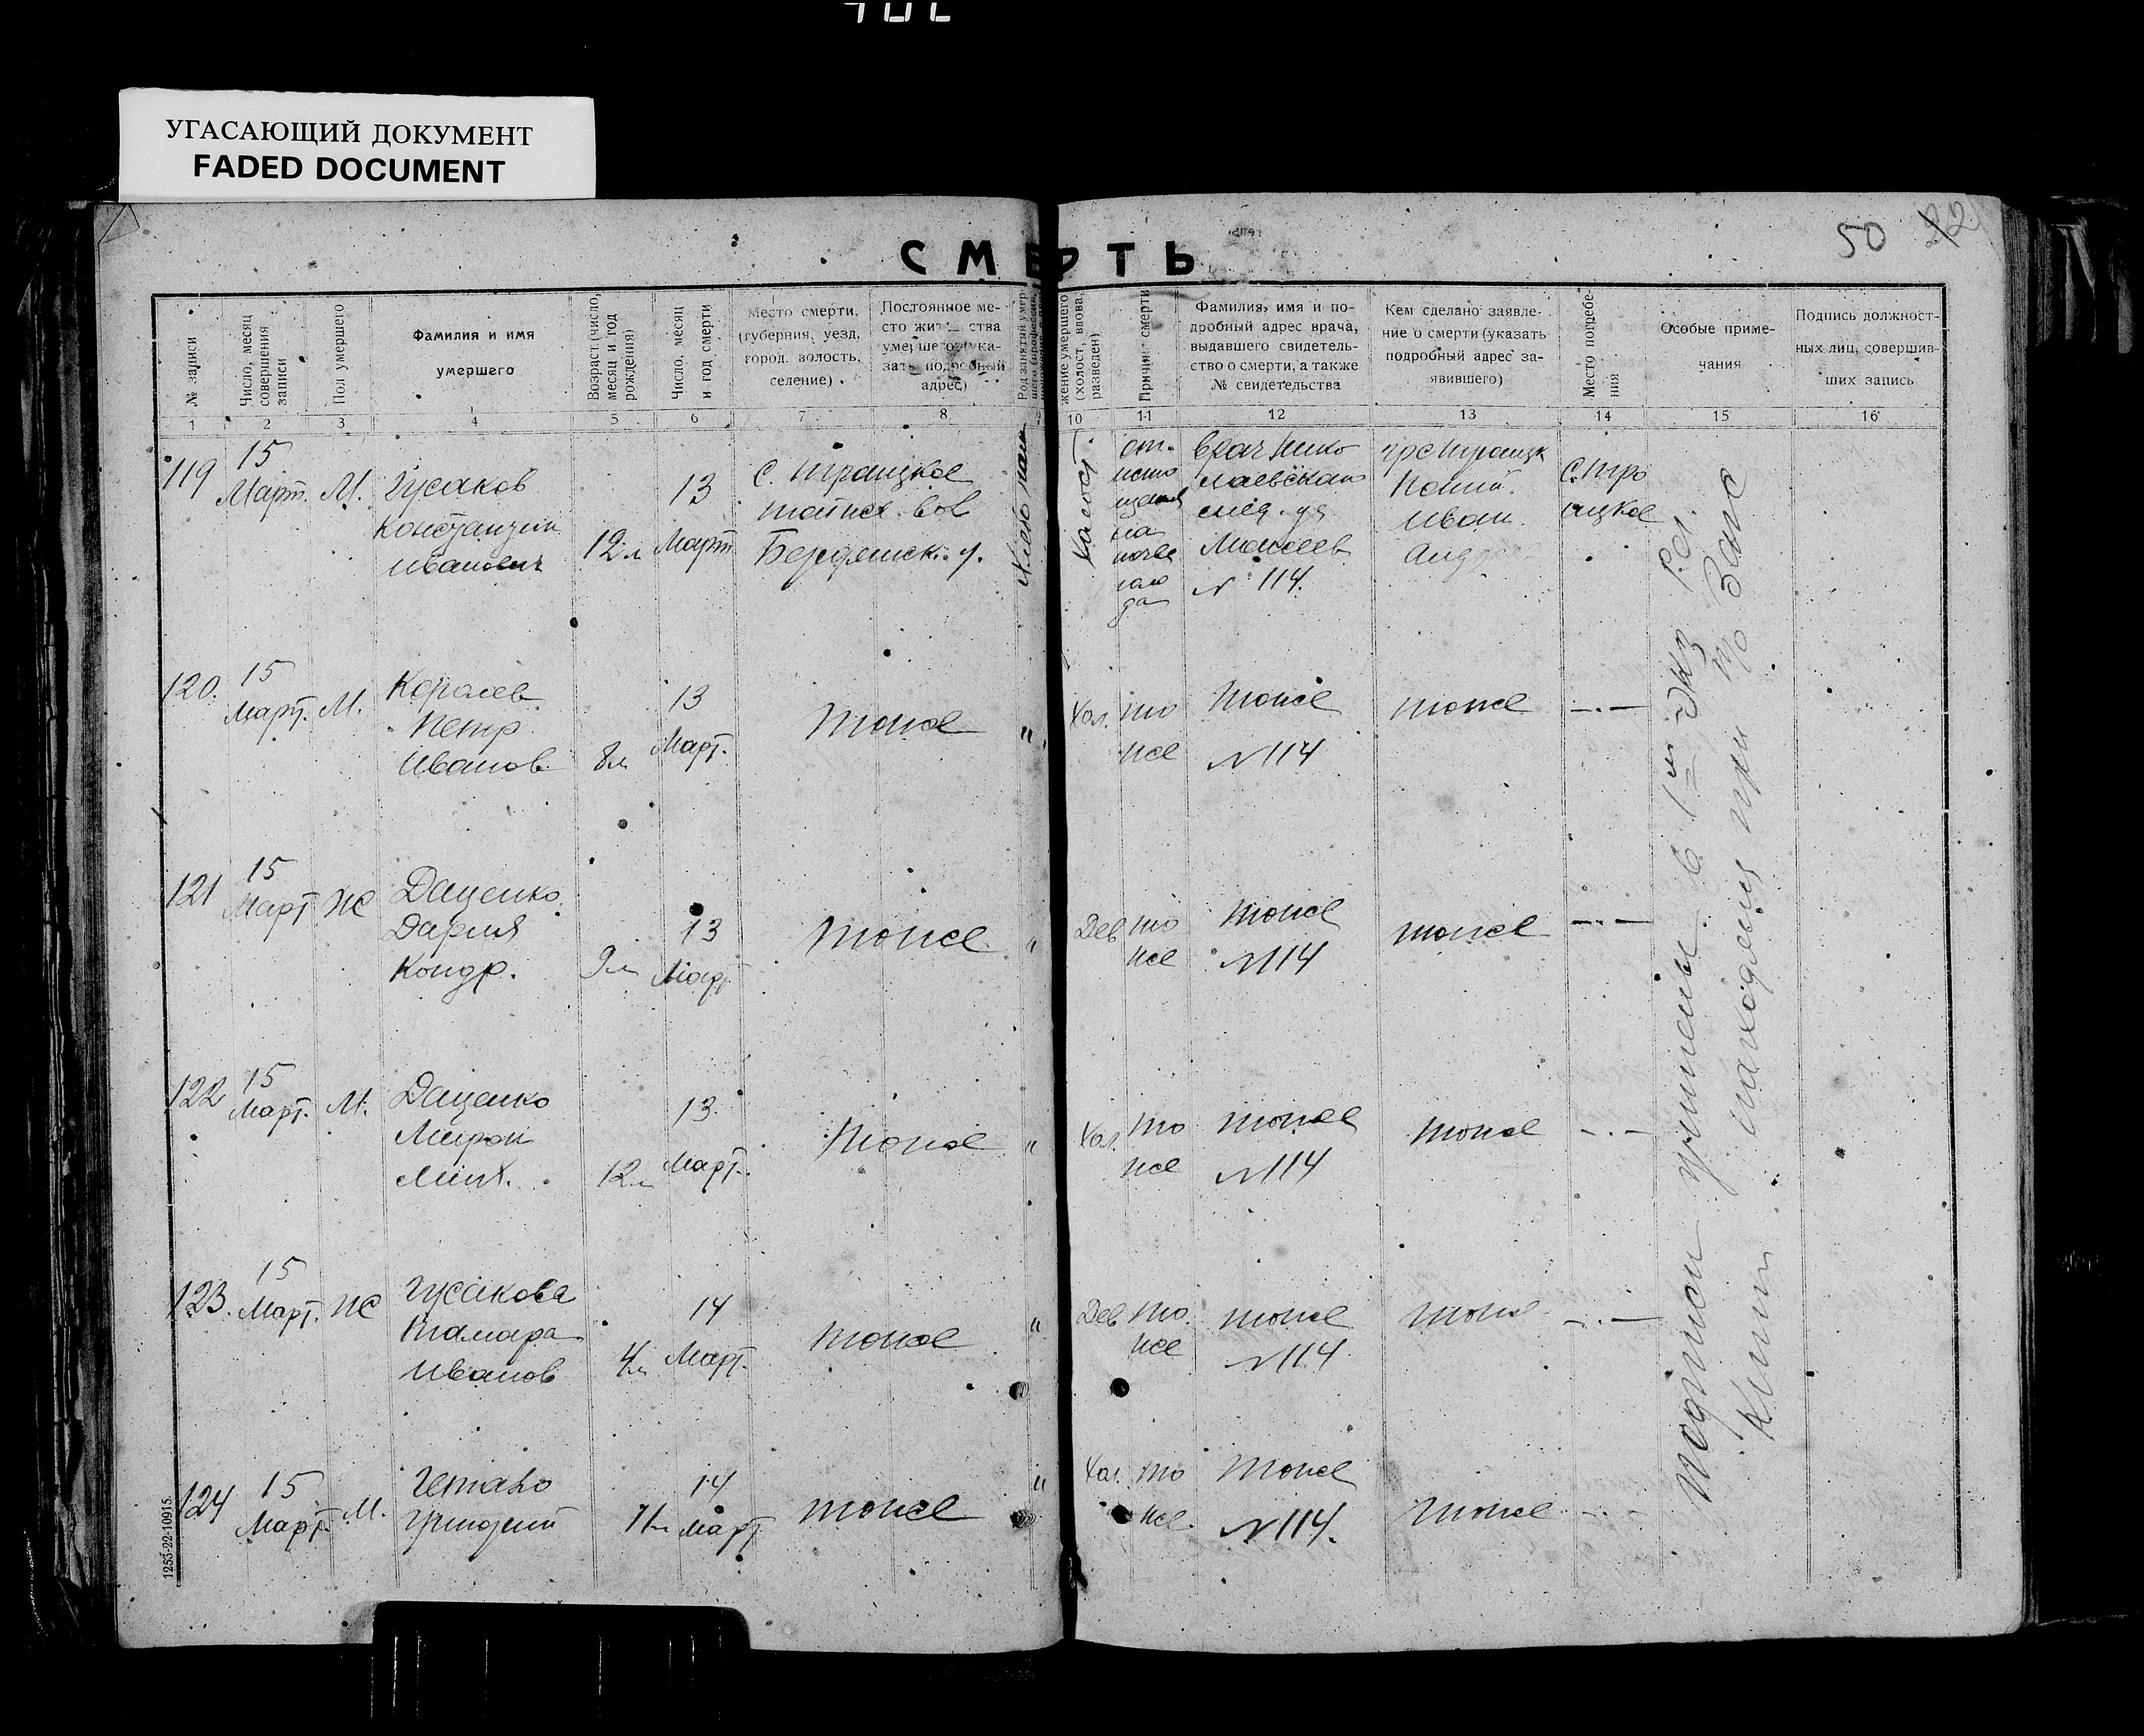 УГАСАЮЩИЙ ДОКУМЕНТ
FADED DOCUMENT
50
22
СМЕРТЬ
№ записи
Число, месяц совершения записи
Пол умершего
Фамилия и имя
умершего
Возраст (число, месяц и год рождения)
Число, месяц и год смерти
Место смерти,
(губерния, уезд,
город, волость,
селение)
Постоянное ме-
сто жительства
умершего (ука-
зать подробный
адрес)
(холост, вдова, разведен)
Причина смерти
Фамилия, имя и по-
дробный адрес врача,
выдавшего свидетель-
ство о смерти, а также
№ свидетельства
Кем сделано заявле-
ние о смерти (указать
подробный адрес за-
явившего)
Место погребе-
ния
Особые приме-
чания
Подпись должност-
ных лиц, совершив-
ших запись
1 2 3 4 5 6 7 8 10 11 12 13 14 15 16
119
15
Март. М.
Гусаков
Константин
Иванович
12 л
13
Март
С. Троицкое
Бердянск. у.
Холост.
от.
исто
щения
на
почве
голо
да
Врач Нико
лаевского
Моисеев
№ 114.
Иван
С. Тро
ицкое
120.
15
Март. М.
Королев
Петр
Иванов
8 л
13
Март.
тоже
"
Хол.
то
же
тоже
№ 114
тоже
— . —
121
15
Март Ж
Даценко
Дария
Кондр.
9 л
13
Март
тоже
"
Дев
то
же
тоже
№ 114
тоже
— . —
122
15
Март. М.
Даценко
Мирон
Мих.
12 л
13
Март.
тоже
"
Хол.
то
же
тоже
№ 114
тоже
— . —
123.
15
Март. Ж
Гусакова
Тамара
Иванов
4 л
14
Март.
тоже
"
Дев
то
же
тоже
№ 114
тоже
— . —
124
15
Март. М.
14
март
тоже
"
Хол.
то
же.
тоже
№ 114.
тоже
— . —
Подписи учинены в 1м экз
находящемся при
1253-22-10915